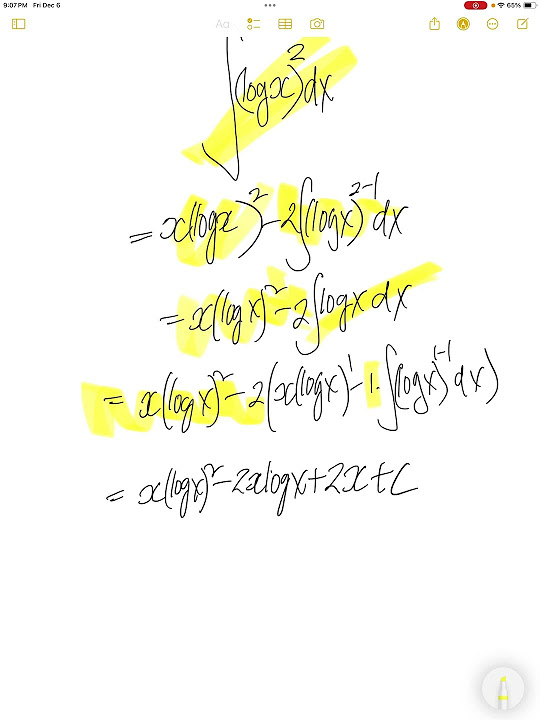 9:07PM Fri Dec 6
65%
Aa
∫(logx)²dx
= x(logx)² - 2∫(logx)²⁻¹dx
= x(logx)² - 2∫logx dx
= x(logx)² - 2(x(logx)¹ - 1.∫(logx)¹⁻¹dx)
= x(logx)² - 2xlogx + 2x + C